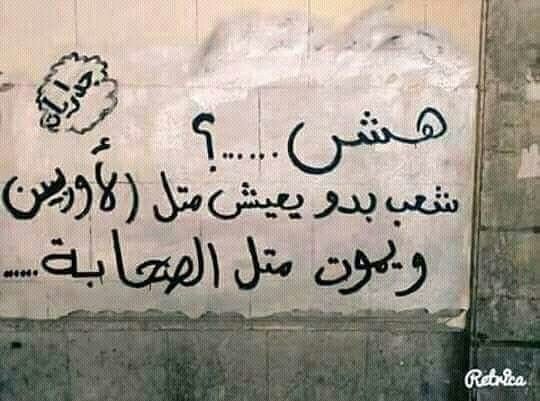 جداريات
هشش ......؟
شعب بدو يعيش متل الأوربيين
ويموت متل الصحابة .....
Retrica